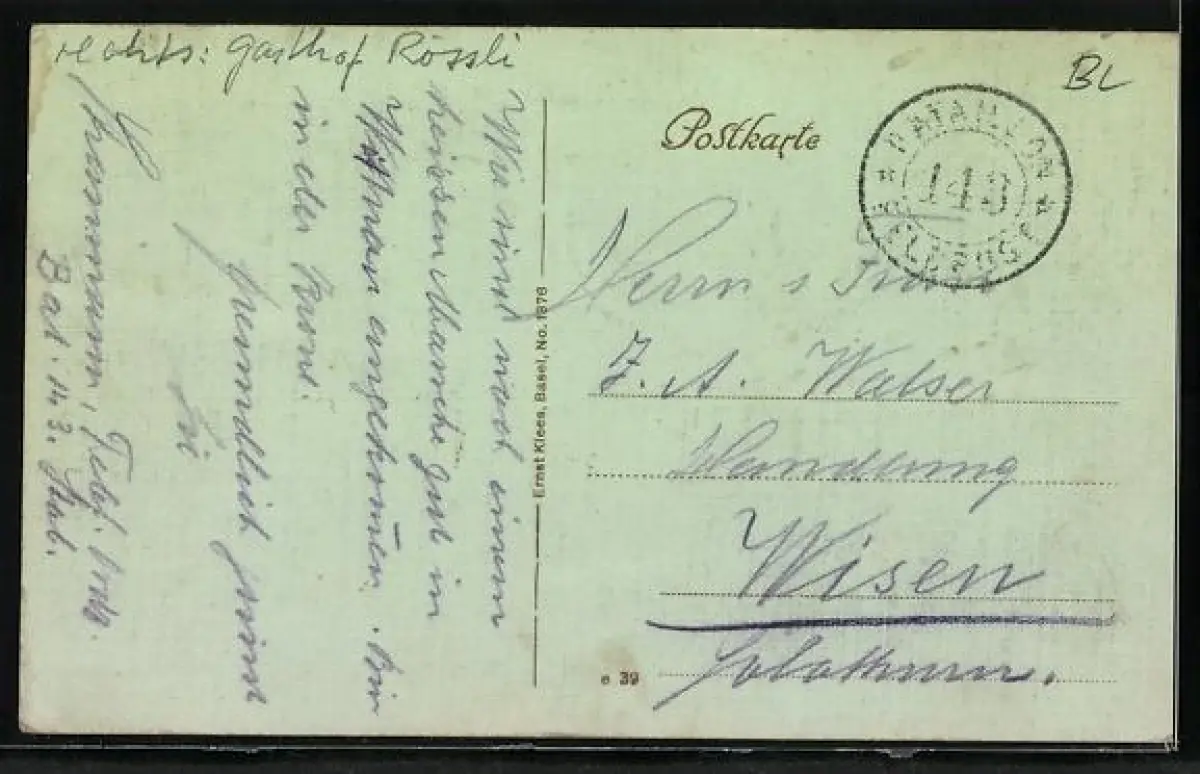 rechts: Gasthof Rössli
BL
Postkarte
BATAILLON
FELDPOST
Wir sind nach einem
heissen Marsche gut in
angekommen. Bin
in der Krone.
freundlich grüsst
Sie
Telef.
Bat. 143. Stab.
Ernst Klees, Basel, No. 1878
Herrn
J. A. Walser
Handlung
Wisen
Solothurn.
e 39